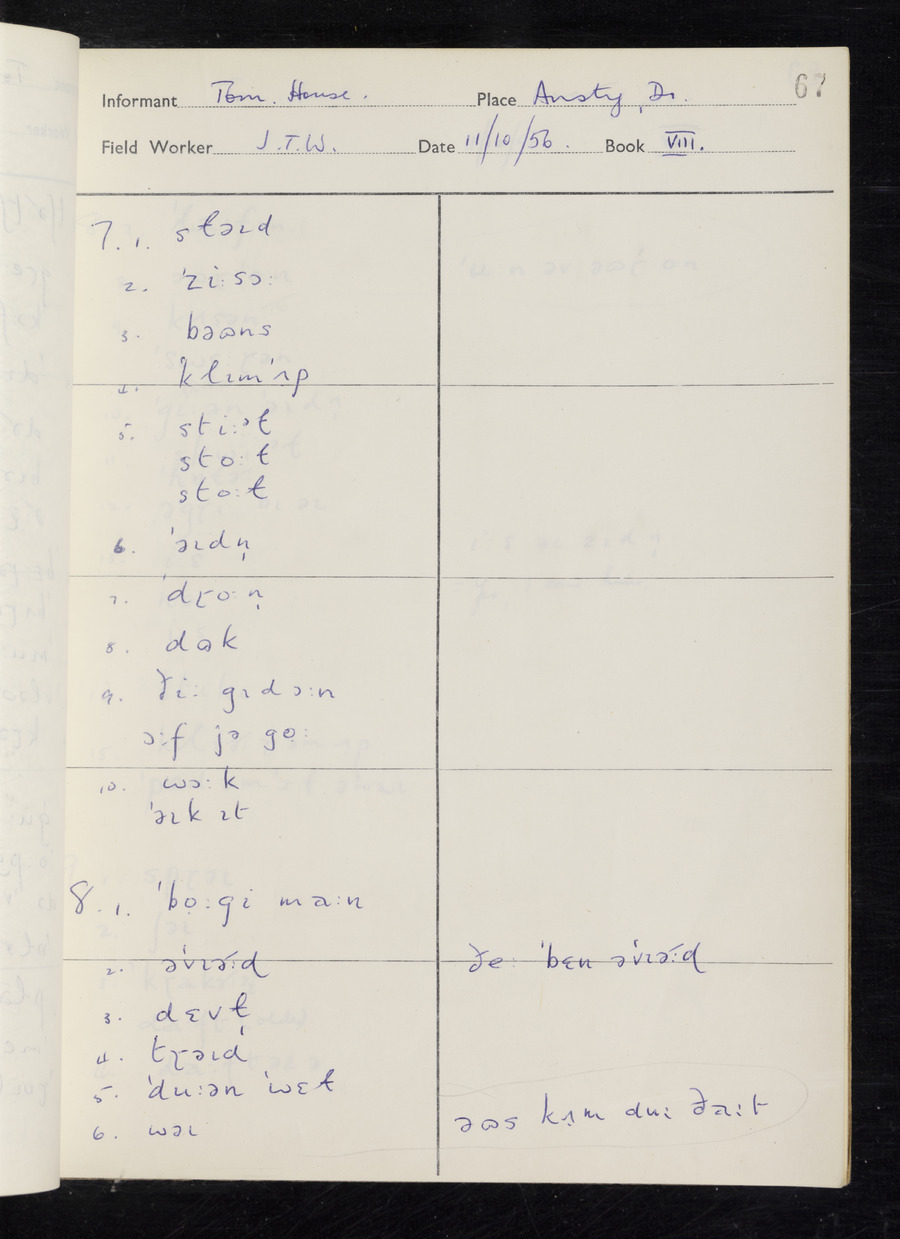 67
Informant Tom. House. Place Ansty, Do.
Field Worker J.T.W. Date 11/10/56. Book VIII.
7. 1. stəɪd
2. ˈziːsɔː
3. bəʊns
4. klɪmˈʌp
5. stiːᵊɫ
stoːɫ
stoːɫ
6. ˈəɪdn̩
7. dɽoːn̩
8. dɒk
9. ðiː gɪdɔːn
ɔːf jə goː
10. wɔːk
ˈəɪk ɪt
8. 1. ˈbọːgi maːn
2. əˈvɪəːd ðeː ˈbɛn əˈvɪəːd
3. dɛvɫ
4. tɽəɪd
5. ˈduːən ˈwɛɫ
6. wəɪ əʊs kʌm duː ðaːt